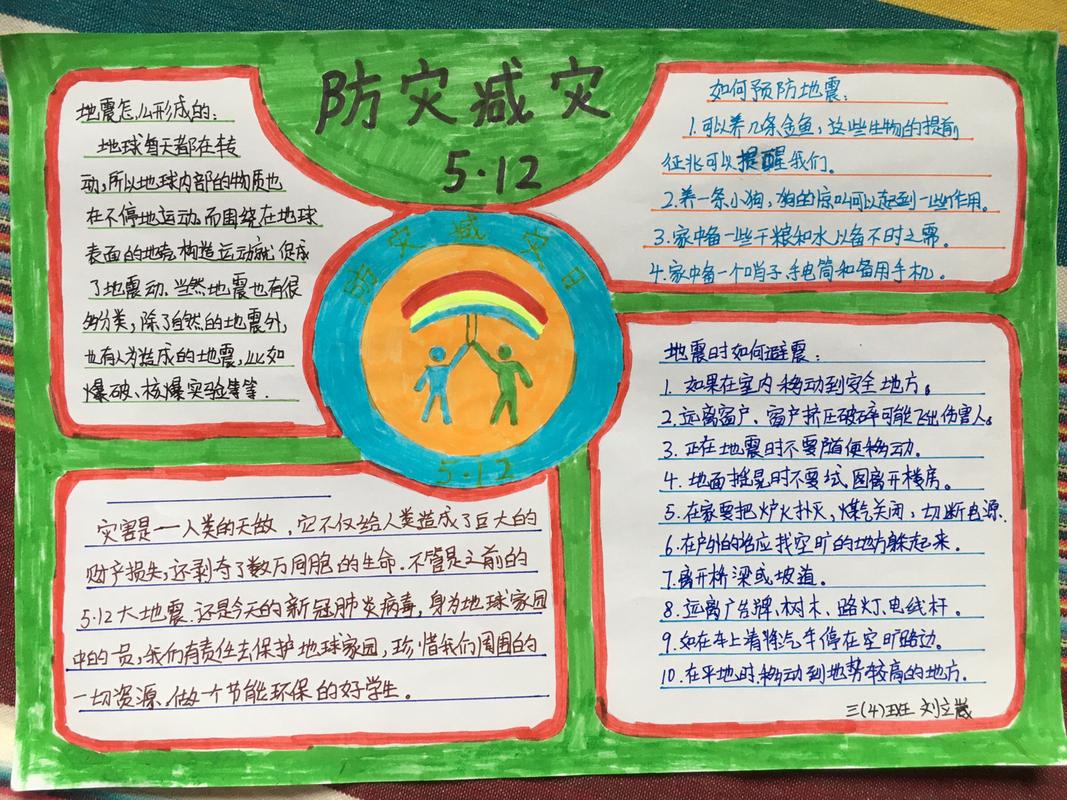 防灾减灾
5·12
地震怎么形成的：
地球每天都在转
动，所以地球内部的物质也
在不停地运动，而围绕在地球
表面的地壳构造运动就促成
了地震动．当然地震也有很
多分类，除了自然的地震外，
也有人为造成的地震，比如
爆破、核爆实验等等．
如何预防地震：
1.可以养几条金鱼，这些生物的提前
征兆可以提醒我们．
2.养一条小狗，狗的惊叫可以起到一些作用。
3.家中备一些干粮和水以备不时之需．
4.家中备一个哨子手电筒和备用手机．
防灾减灾日
5·12
灾害是一人类的天敌，它不仅给人类造成了巨大的
财产损失，还剥夺了数万同胞的生命．不管是之前的
5.12大地震．还是今天的新冠肺炎病毒，身为地球家园
中的一员，我们有责任去保护地球家园，珍惜我们周围的
一切资源．做一个节能环保的好学生．
地震时如何避震：
1．如果在室内移动到安全地方。
2.远离窗户、窗户挤压破碎可能飞出伤害人。
3．正在地震时不要随便移动．
4．地面摇晃时不要试图离开楼房。
5.在家要把炉火扑灭，煤气关闭，切断电源．
6.在户外的话应找空旷的地方躲起来．
7.离开桥梁或坡道．
8.远离广告牌、树木、路灯、电线杆．
9.如在车上请将汽车停在空旷路边．
10.在平地时．移动到地势较高的地方．
三(4)班 刘立